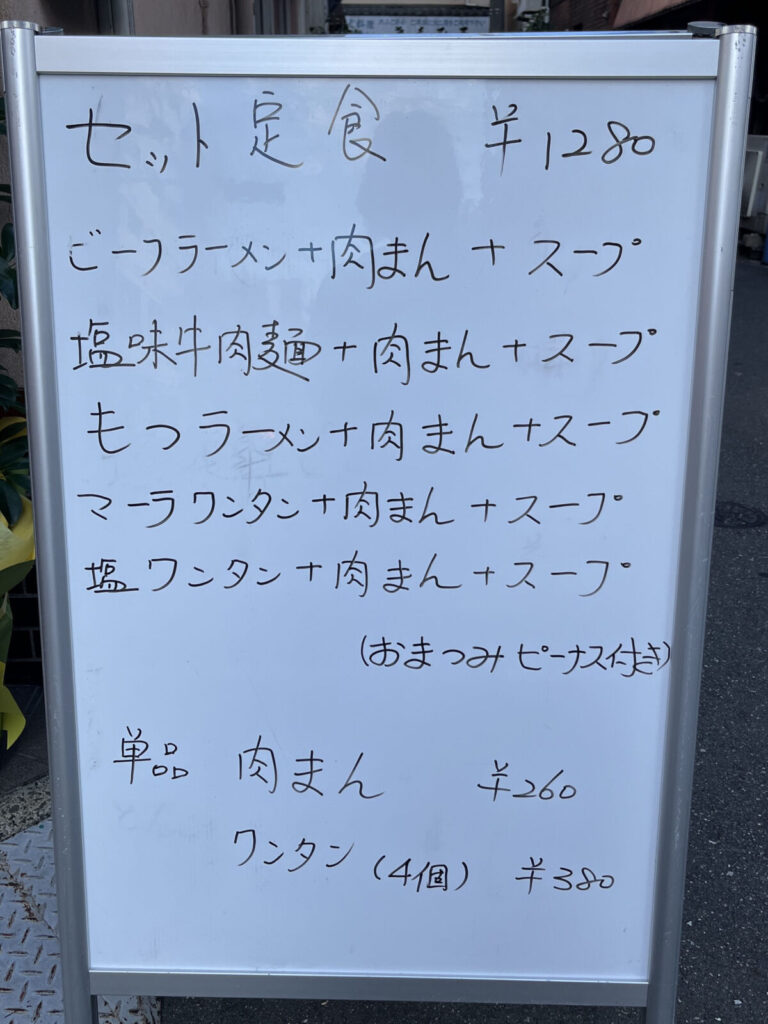 セット定食 ¥1280
ごーフラーメン+肉まん+スープ
塩味牛肉麺+肉まん+スープ
もつラーメン+肉まん+スープ
マーラワンタン+肉まん+スープ
塩ワンタン+肉まん+スープ
(おまつみピーナス付き)
単品 肉まん ¥260
ワンタン(4個) ¥380